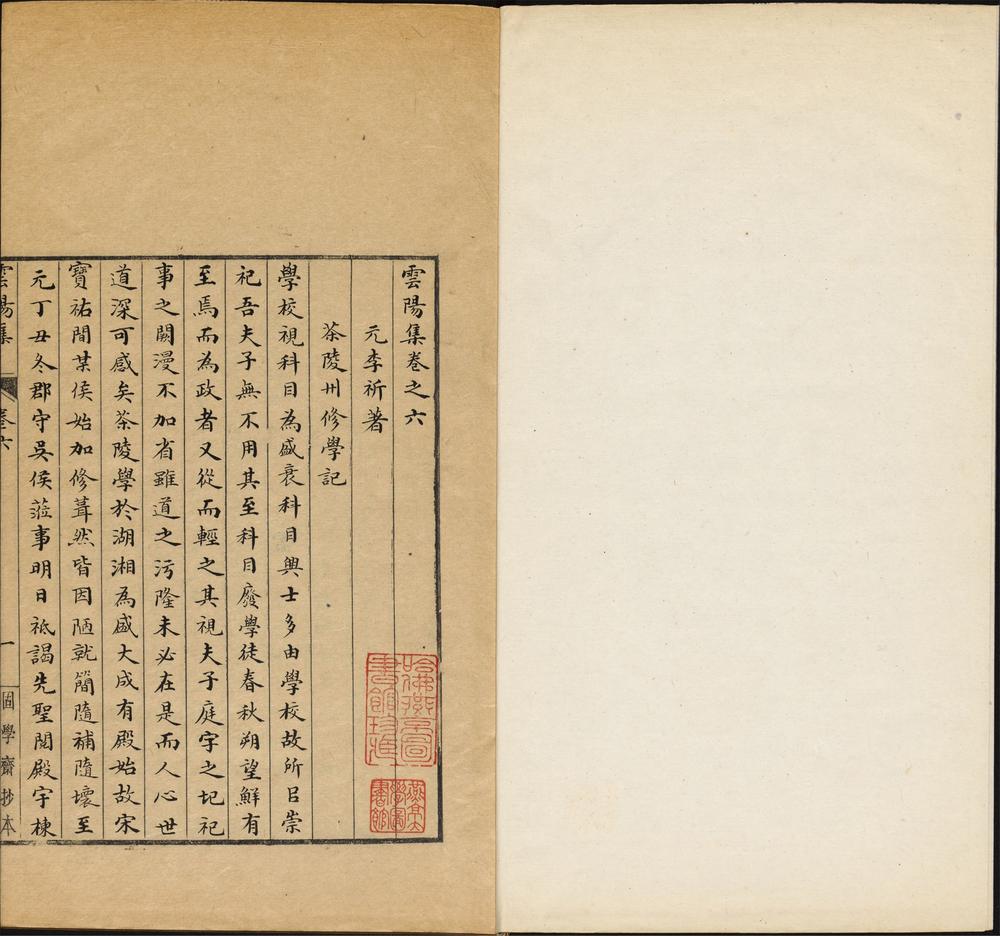 雲陽集卷之六
元李祈著
茶陵州修學記
學校視科目為盛衰科目興士多由學校故所㠯崇
祀吾夫子無不用其至科目廢學徒春秋朔望鮮有
至焉而為政者又從而輕之其視夫子庭宇之圮祀
事之闕漫不加省雖道之污隆未必在是而人心世
道深可感矣茶陵學於湖湘為盛大成有殿始故宋
寶祐間某侯始加修葺然皆因陋就簡隨補隨壞至
元丁丑冬郡守吳侯蒞事明日祗謁先聖閱殿宇棟
雲陽集
卷六
一
固學齋抄本
哈佛燕京圖書館珍藏
燕京大學圖書館